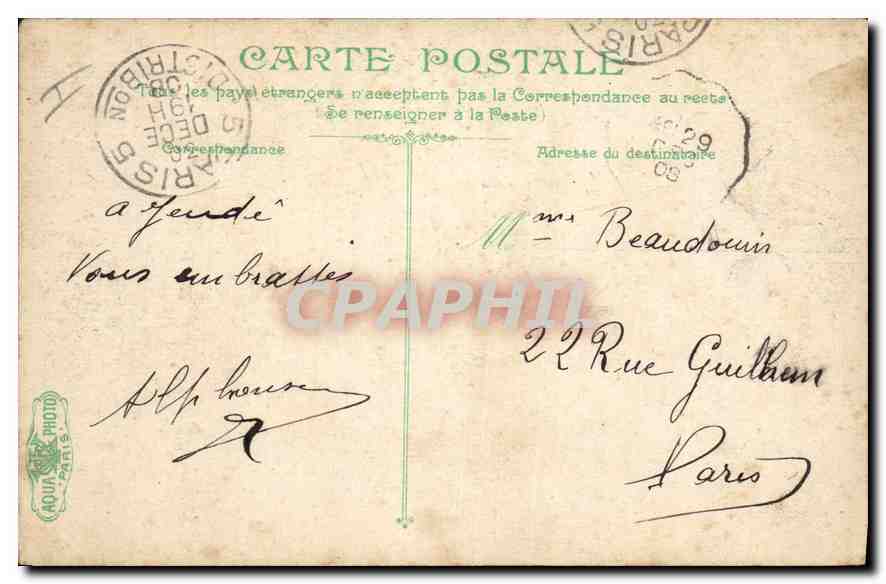 CARTE POSTALE
Tous les pays étrangers n'acceptent pas la Correspondance au recto
(Se renseigner à la Poste)
Correspondance
Adresse du destinataire
PARIS 5 DISTRIBON
19H
DECE
08
PARIS
29
08
a
Vous embrasses
Alphonse
Mme Beaudouin
22 Rue Guilhem
Paris
CPAPHIL
AQUA PHOTO
PARIS